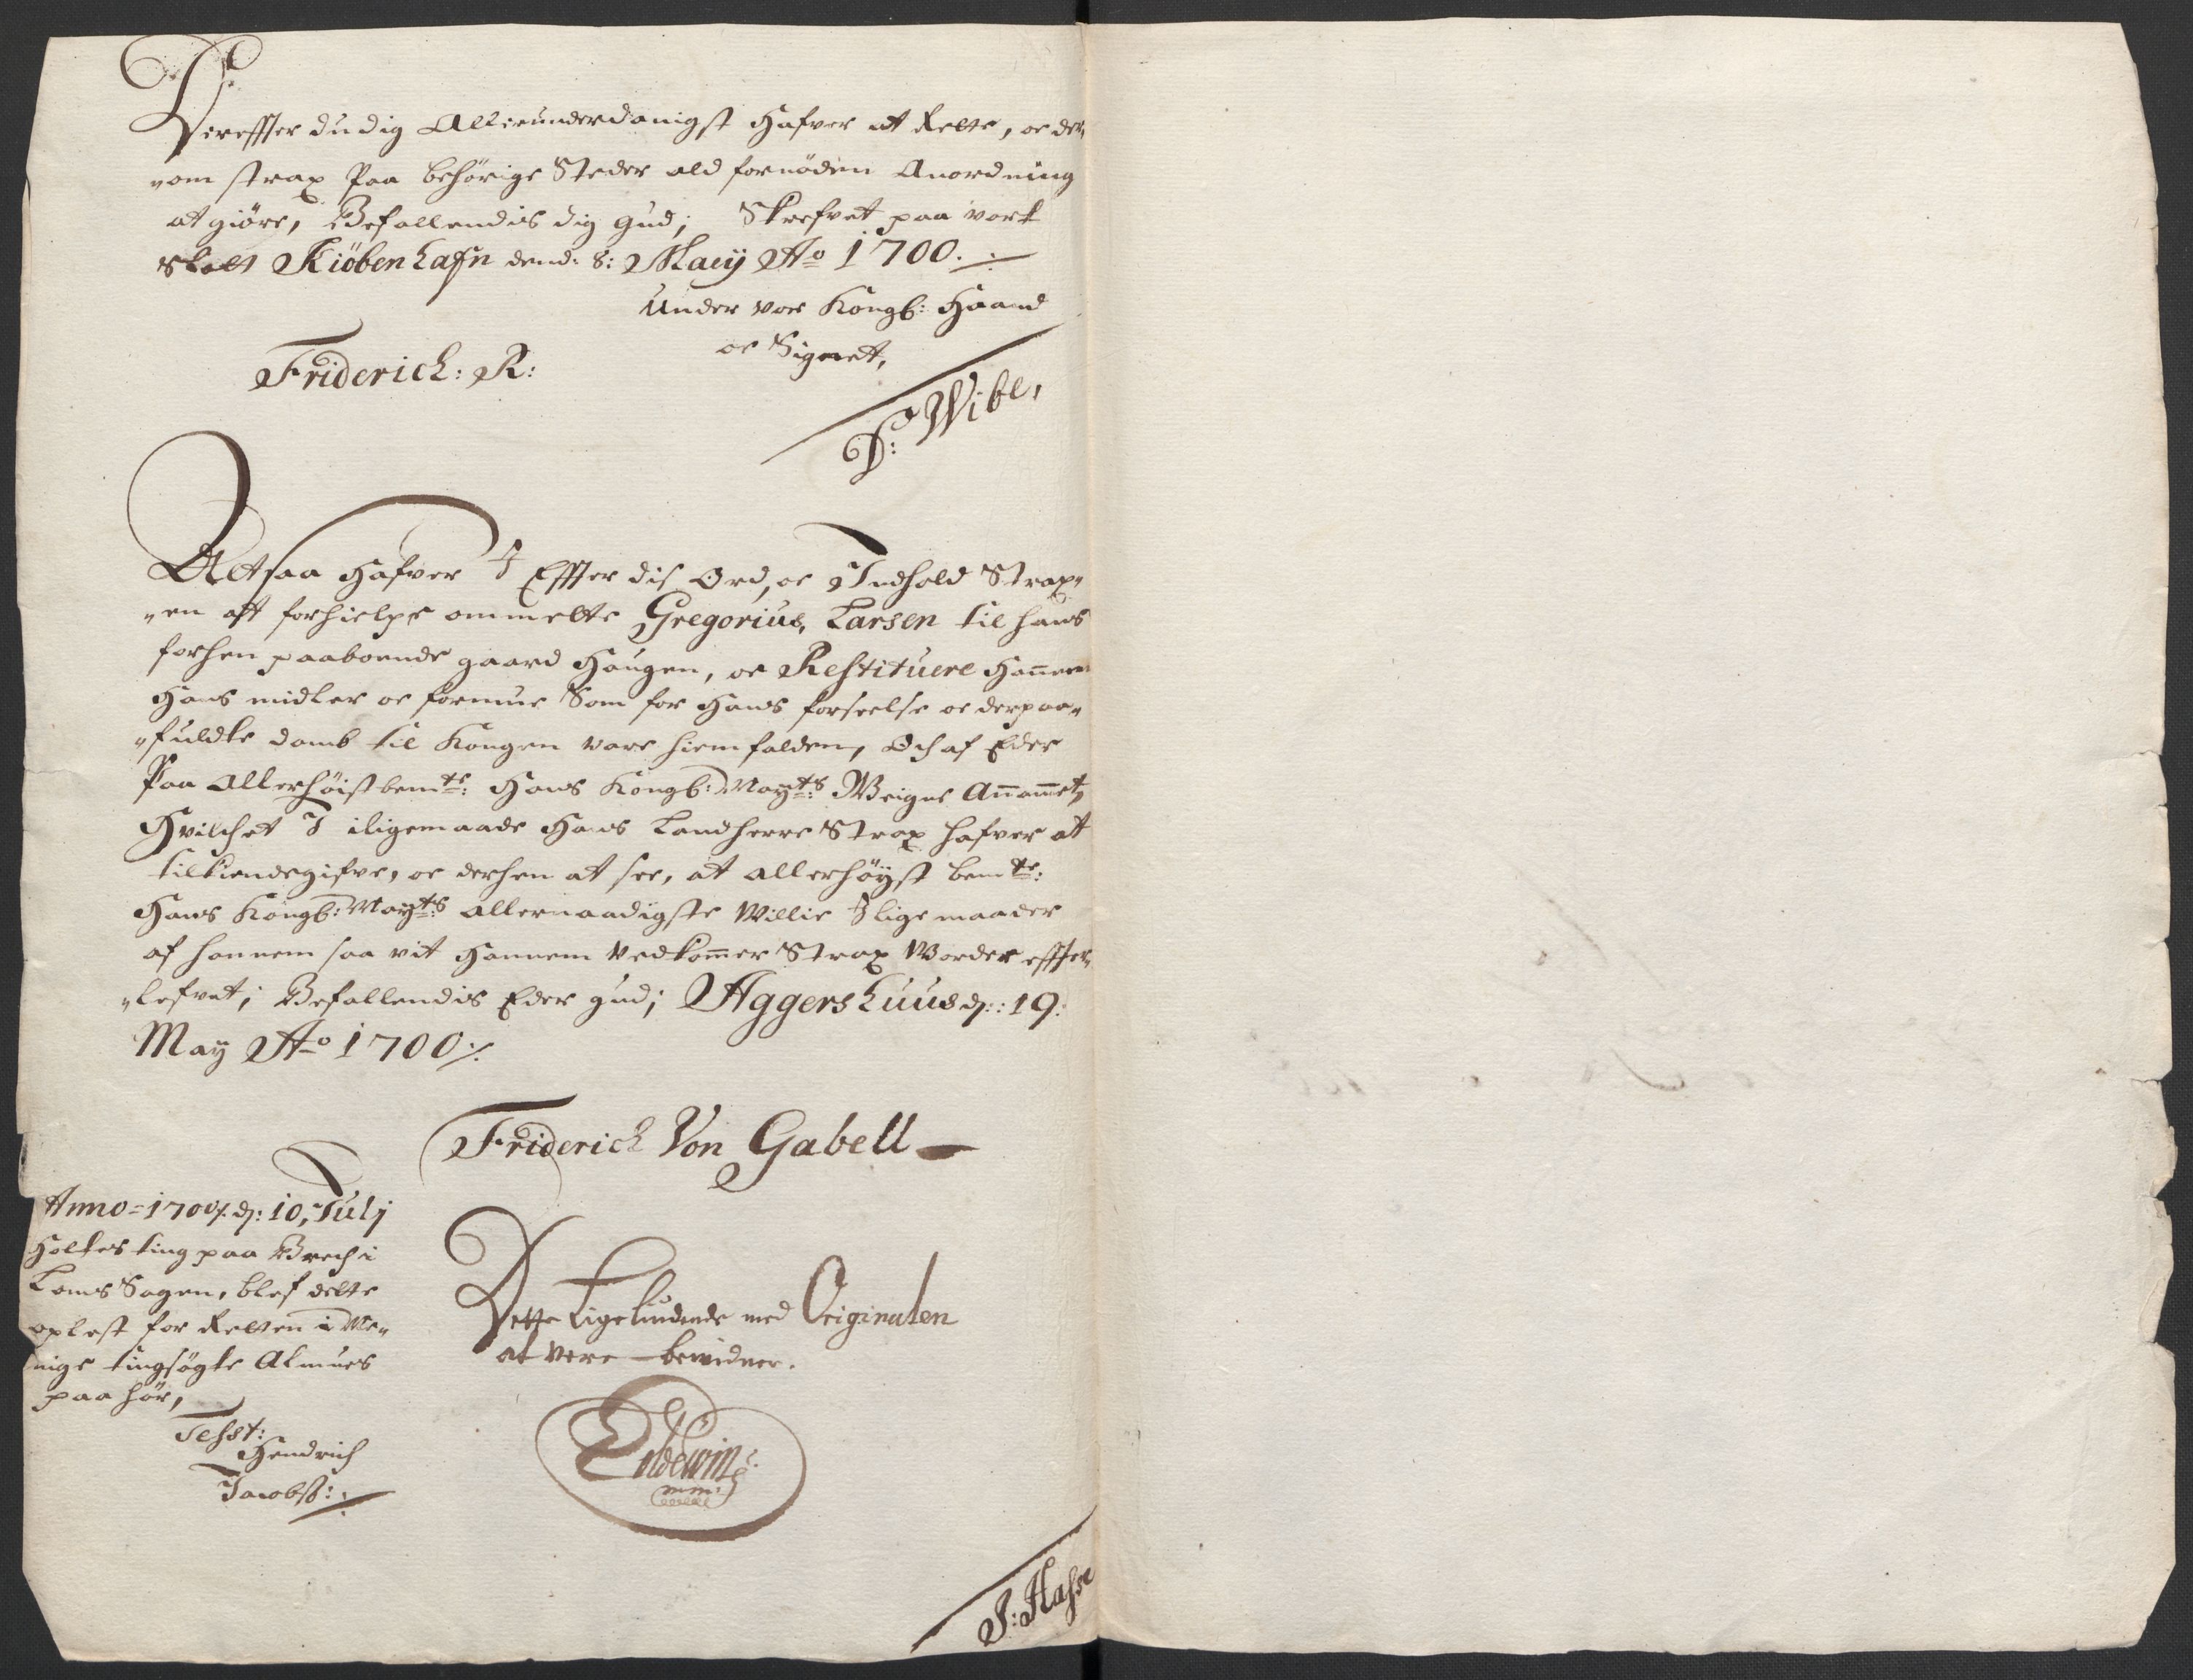 Dereffter du dig Allerunderdanigst hafver at Rette, oc der„
„om strax paa behörige Steder ald fornöden Anordning
at giöre, Befallendis dig Gud; Skrefvet paa vort
Slott Kiöbenhafn dend: 8: Maij Ao 1700 ./.
Under vor Kongl: Haand
oc Signet,
Friderich: R:
D: Wibe,
Altsaa hafver I Effter dis Ord, oc Indhold Strax„
„en att forhielpe ommelte Gregorius Larsen til hans
forhen paaboende gaard Haugen, oc Restituere Hannem
Hans midler oc formue Som for Hans forseelse oc derpaa„
„fuldte domb til Kongen vare hiemfalden, Och af Eder
Paa Allerhöistbemte: Hans Kongl: Mayts: Weigne Anammet,
Hvilchet I iligemaade Hans Landherre Strax hafver at
tilkiendegifve, oc derhen at see, at allerhöyst bemte:
Hans Kongl: Mayts allernaadigste Willie I lige maader
af hannem saa vit Hannem Vedkommer Strax Worder effter„
„lefvet; Befallendis Eder gud; Aggershuus d: 19:
May Ao 1700 ./.
Friderich Von Gabell
Anno = 1700 ./. d: 10, Julj
Holtes ting paa Brech i
Loms Sogen, blef dette
oplest for Retten i Me„
nige tingsögte Almues
paahör,
Testt:
Hendrich
Jacobß: ./.
Dette Ligeliudende med Originalen
at Vere bewidner.
mm:
J: Hasse